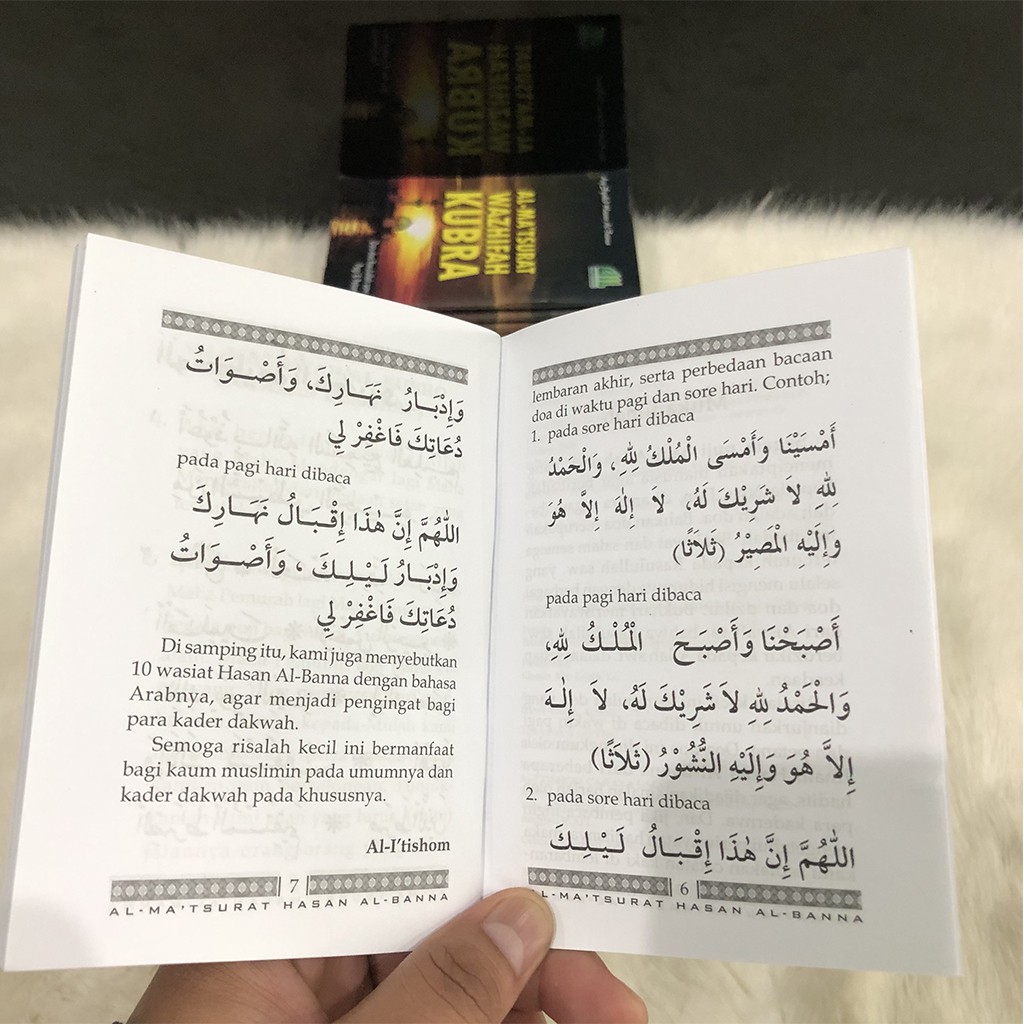 AL-MA'TSURAT
WAZHIFAH
KUBRA
lembaran akhir, serta perbedaan bacaan
doa di waktu pagi dan sore hari. Contoh;
1. pada sore hari dibaca
أَمْسَيْنَا وَأَمْسَى الْمُلْكُ لِلّٰهِ، وَالْحَمْدُ
لِلّٰهِ لاَ شَرِيْكَ لَهُ، لاَ إِلٰهَ إِلاَّ هُوَ
وَإِلَيْهِ الْمَصِيْرُ (ثَلاَثًا)
pada pagi hari dibaca
أَصْبَحْنَا وَأَصْبَحَ الْمُلْكُ لِلّٰهِ،
وَالْحَمْدُ لِلّٰهِ لاَ شَرِيْكَ لَهُ، لاَ إِلٰهَ
إِلاَّ هُوَ وَإِلَيْهِ النُّشُوْرُ (ثَلاَثًا)
2. pada sore hari dibaca
اَللّٰهُمَّ إِنَّ هٰذَا إِقْبَالُ لَيْلِكَ
6
AL-MA'TSURAT HASAN AL-BANNA
وَإِدْبَارُ نَهَارِكَ، وَأَصْوَاتُ
دُعَاتِكَ فَاغْفِرْ لِي
pada pagi hari dibaca
اَللّٰهُمَّ إِنَّ هٰذَا إِقْبَالُ نَهَارِكَ
وَإِدْبَارُ لَيْلِكَ، وَأَصْوَاتُ
دُعَاتِكَ فَاغْفِرْ لِي
Di samping itu, kami juga menyebutkan
10 wasiat Hasan Al-Banna dengan bahasa
Arabnya, agar menjadi pengingat bagi
para kader dakwah.
Semoga risalah kecil ini bermanfaat
bagi kaum muslimin pada umumnya dan
kader dakwah pada khususnya.
Al-I'tishom
7
AL-MA'TSURAT HASAN AL-BANNA